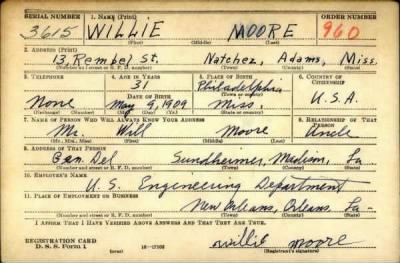 SERIAL NUMBER 1. NAME (Print) ORDER NUMBER
3615 WILLIE MOORE 960
(First) (Middle) (Last)
2. ADDRESS (Print)
13, Rembel St. Natchez, Adams, Miss.
(Number and street or R. F. D. number) (Town) (County) (State)
3. TELEPHONE 4. AGE IN YEARS 5. PLACE OF BIRTH 6. COUNTRY OF CITIZENSHIP
31 Philadelphia
DATE OF BIRTH (Town or county)
None May 9, 1909 Miss. U.S.A.
(Exchange) (Number) (Mo.) (Day) (Yr.) (State or country)
7. NAME OF PERSON WHO WILL ALWAYS KNOW YOUR ADDRESS 8. RELATIONSHIP OF THAT PERSON
Mr. Will Moore Uncle
(Mr., Mrs., Miss) (First) (Middle) (Last)
9. ADDRESS OF THAT PERSON
Gen. Del Sundheimer, Madison, La
(Number and street or R. F. D. number) (Town) (County) (State)
10. EMPLOYER'S NAME
U. S. Engineering Department
11. PLACE OF EMPLOYMENT OR BUSINESS
New Orleans, Orleans, La-
(Number and street or R. F. D. number) (Town) (County) (State)
I AFFIRM THAT I HAVE VERIFIED ABOVE ANSWERS AND THAT THEY ARE TRUE.
REGISTRATION CARD
D. S. S. Form 1 (over) Willie Moore
(Registrant's signature)